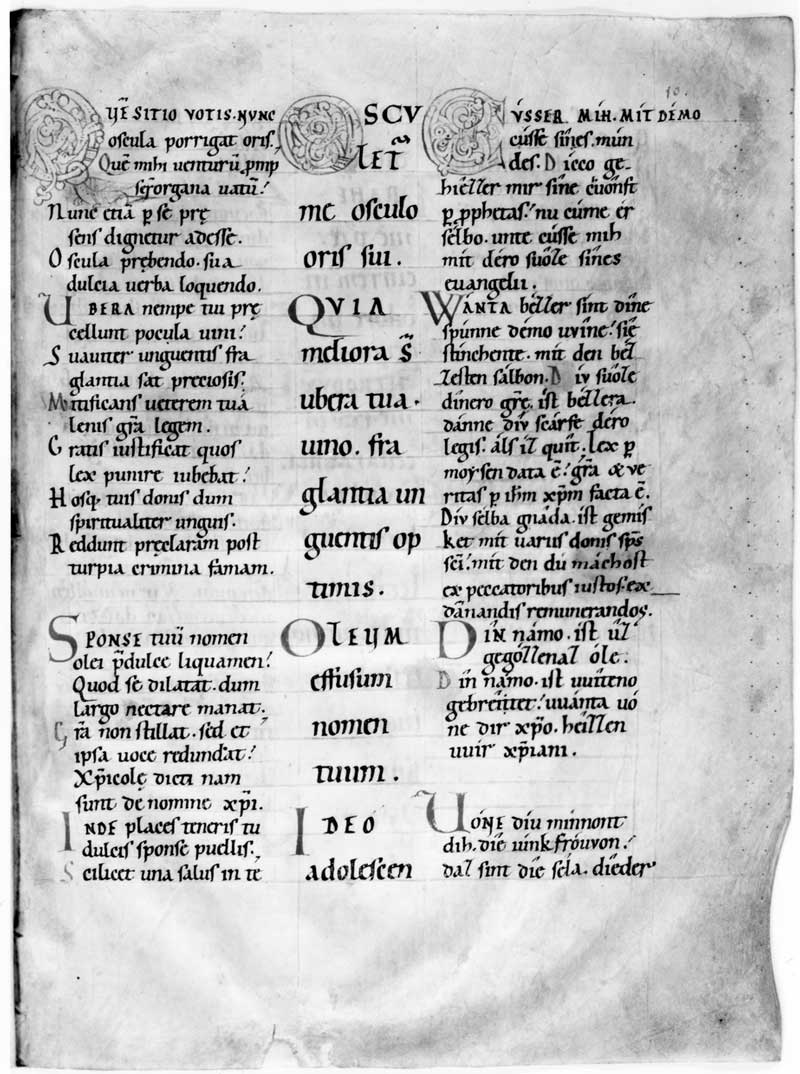 10.
QVE SITIO VOTIS. NVNC
oscula porrigat oris.
Quē mihi venturū p̱mp
ser̄ organa vatū!
Nunc etiā p̱ se pre̜
sens dignetur adesse.
Oscula pre̜bendo. sua
dulcia verba loquendo.
UBERA nempe tui pre̜
cellunt pocula uini!
Suauiter unguentis fra
glantia sat preciosis.
Mitificans ueterem tuā
lenis gr̄a legem.
Gratis iustificat quos
lex punire iubebat!
Hosq; tuis donis dum
spiritualiter unguis.
Reddunt pre̜claram post
turpia crimina famam.
SPONSE tuū nomen
olei p̄dulce liquamen!
Quod se dilatat. dum
largo nectare manat.
Gr̄a non stillat. sed et
ipsa uoce redundat!
Xp̄icole̜ dicti nam
sunt de nomine xp̄i.
INDE places teneris tu
dulcis sponse puellis.
Scilicet una salus in te
OSCV
LET̄
me osculo
oris sui.
QVIA
meliora s̄
ubera tua.
uino. fra
glantia un
guentis op
timis.
OLEUM
effusum
nomen
tuum.
IDEO
adolescen
CVSSER MIH. MIT DÉMO
cússe sînes. mun
des. Dicco ge
hiêzer mir sîne cuônft
p̱ p̱phetas! nu cúme ér
sélbo. unte cússe mih
mit déro suôze sînes
euangelii.
WANTA bézzer sint dîne
spúnne démo uuîne! sîe
stinchente. mit den béz
zesten salbon. Div suôze
dînero gr̄e̜. ist bézzera.
dánne div scarfe déro
legis. áls iz quît. lex p̱
moysen data ē! gr̄a & ve
ritas p̱ ihm̄ xp̄m facta ē.
Div sélba gnâda. ist gemis
ket mit uariis donis sp̄s
sc̄i! mit den dû máchost
ex peccatoribus iustos. ex
dānandis remunerandos.
DIN námo. ist ûz
gegózzenaz óle.
Dîn námo. ist uuîteno
gebréitet! uuánta uó
ne dir xp̄o. héizzen
uuir xp̄iani.
UÓNE díu mínnont
dih. díe iúnkfróuvon!
daz sint díe séla. díeder